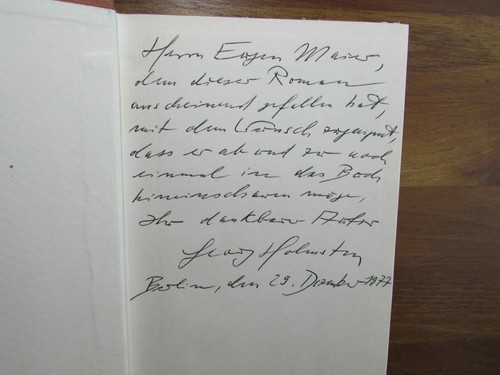 Herrn Eugen Maier,
dem dieser Roman
anscheinend gefallen hat,
mit dem Wunsch zugeeignet,
dass er ab und zu noch
einmal in das Buch
hineinschauen möge,
Ihr dankbarer Autor
Georg Holmsten
Berlin, den 29. Dezember 1977